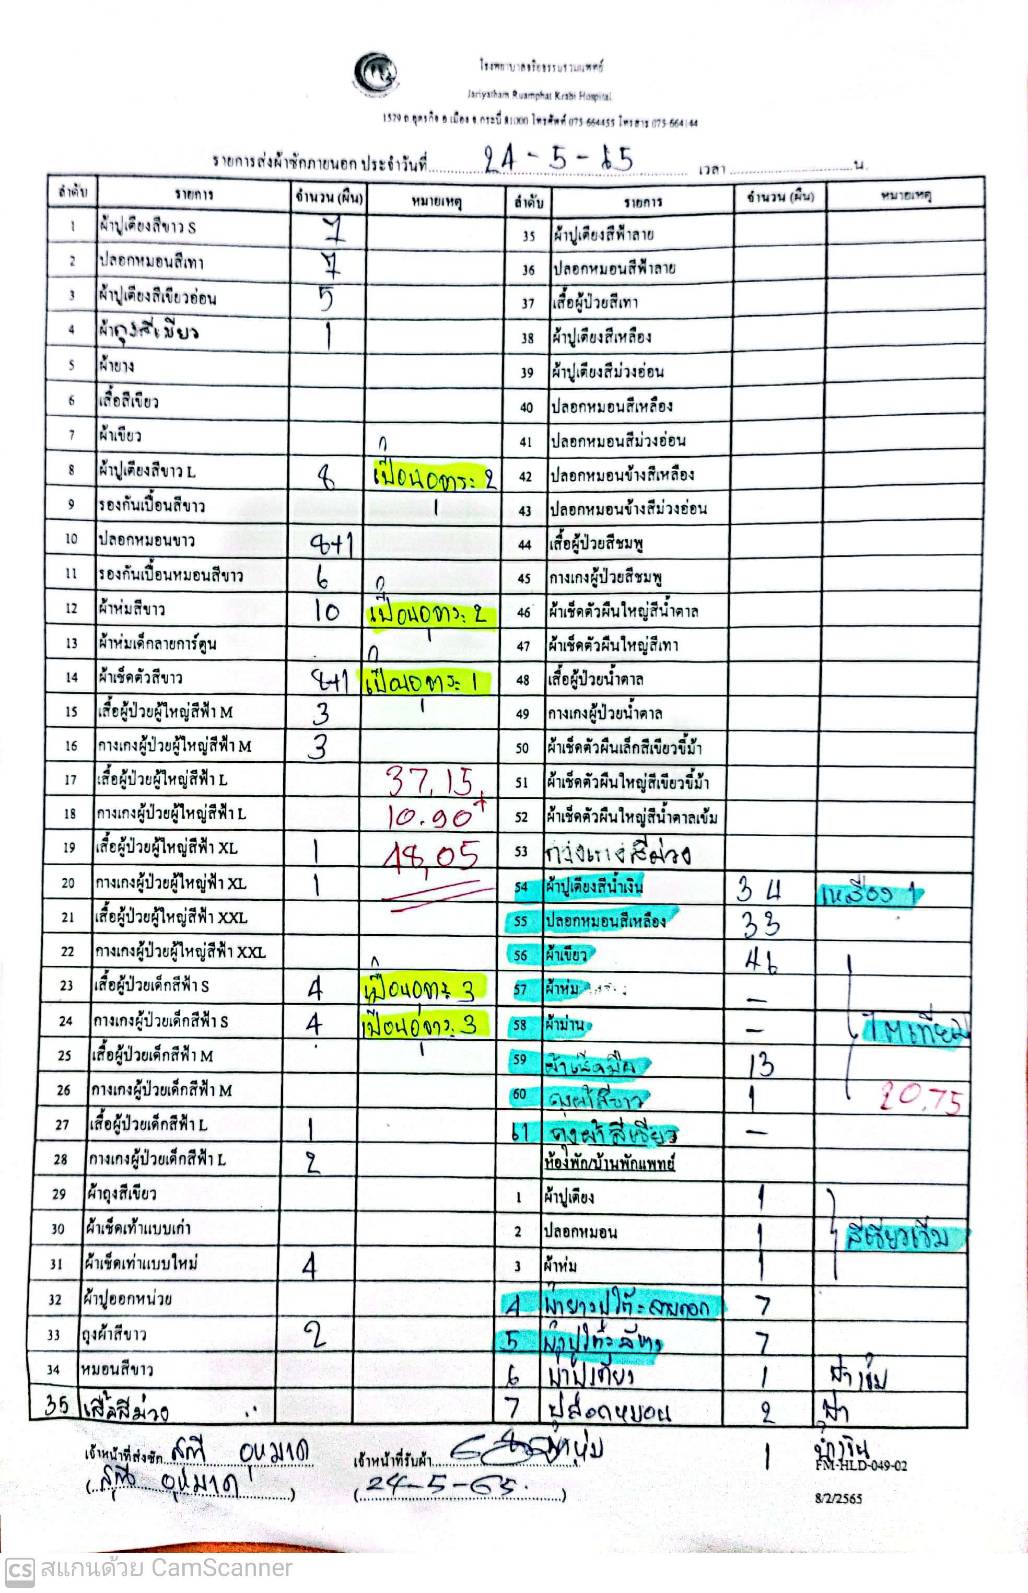 โรงพยาบาลจริยธรรมรวมแพทย์
Jariyatham Ruamphat Krabi Hospital
1579 ถ.อุตรกิจ อ.เมือง จ.กระบี่ 81000 โทรศัพท์ 075-664455 โทรสาร 075-664144
รายการส่งผ้าซักภายนอก ประจำวันที่ 24-5-65 เวลา น.
ลำดับ รายการ จำนวน (ผืน) หมายเหตุ ลำดับ รายการ จำนวน (ผืน) หมายเหตุ
1 ผ้าปูเตียงสีขาว S 7 35 ผ้าปูเตียงสีฟ้าลาย
2 ปลอกหมอนสีเทา 7 36 ปลอกหมอนสีฟ้าลาย
3 ผ้าปูเตียงสีเขียวอ่อน 5 37 เสื้อผู้ป่วยสีเทา
4 ผ้าถุงสีเขียว 1 38 ผ้าปูเตียงสีเหลือง
5 ผ้ายาง 39 ผ้าปูเตียงสีม่วงอ่อน
6 เสื้อสีเขียว 40 ปลอกหมอนสีเหลือง
7 ผ้าเขียว 41 ปลอกหมอนสีม่วงอ่อน
8 ผ้าปูเตียงสีขาว L 8 เปื้อนอุจาระ 2 42 ปลอกหมอนข้างสีเหลือง
9 รองกันเปื้อนสีขาว 43 ปลอกหมอนข้างสีม่วงอ่อน
10 ปลอกหมอนขาว 8+1 44 เสื้อผู้ป่วยสีชมพู
11 รองกันเปื้อนหมอนสีขาว 6 45 กางเกงผู้ป่วยสีชมพู
12 ผ้าห่มสีขาว 10 เปื้อนอุจาระ 2 46 ผ้าเช็ดตัวผืนใหญ่สีน้ำตาล
13 ผ้าห่มเด็กลายการ์ตูน 47 ผ้าเช็ดตัวผืนใหญ่สีเทา
14 ผ้าเช็ดตัวสีขาว 8+1 เปื้อนอุจาระ 1 48 เสื้อผู้ป่วยน้ำตาล
15 เสื้อผู้ป่วยผู้ใหญ่สีฟ้า M 3 49 กางเกงผู้ป่วยน้ำตาล
16 กางเกงผู้ป่วยผู้ใหญ่สีฟ้า M 3 50 ผ้าเช็ดตัวผืนเล็กสีเขียวขี้ม้า
17 เสื้อผู้ป่วยผู้ใหญ่สีฟ้า L 37.15 51 ผ้าเช็ดตัวผืนใหญ่สีเขียวขี้ม้า
18 กางเกงผู้ป่วยผู้ใหญ่สีฟ้า L 10.90 + 52 ผ้าเช็ดตัวผืนใหญ่สีน้ำตาลเข้ม
19 เสื้อผู้ป่วยผู้ใหญ่สีฟ้า XL 1 48,05 53 กางเกงสีม่วง
20 กางเกงผู้ป่วยผู้ใหญ่ฟ้า XL 1 54 ผ้าปูเตียงสีน้ำเงิน 34 เหลือง 1
21 เสื้อผู้ป่วยผู้ใหญ่สีฟ้า XXL 55 ปลอกหมอนสีเหลือง 33
22 กางเกงผู้ป่วยผู้ใหญ่สีฟ้า XXL 56 ผ้าเขียว 46
23 เสื้อผู้ป่วยเด็กสีฟ้า S 4 เปื้อนอุจาระ 3 57 ผ้าห่ม -
24 กางเกงผู้ป่วยเด็กสีฟ้า S 4 เปื้อนอุจาระ 3 58 ผ้าม่าน - ไตเทียม
25 เสื้อผู้ป่วยเด็กสีฟ้า M 59 ผ้าเช็ดมือ 13
26 กางเกงผู้ป่วยเด็กสีฟ้า M 60 ถุงผ้าสีขาว 1 20.75
27 เสื้อผู้ป่วยเด็กสีฟ้า L 1 61 ถุงผ้าสีเขียว -
28 กางเกงผู้ป่วยเด็กสีฟ้า L 2 ห้องพัก/บ้านพักแพทย์
29 ผ้าถุงสีเขียว 1 ผ้าปูเตียง 1
30 ผ้าเช็ดเท้าแบบเก่า 2 ปลอกหมอน 1 สีเขียวเข้ม
31 ผ้าเช็ดเท้าแบบใหม่ 4 3 ผ้าห่ม 1
32 ผ้าปูออกหน่วย 4 ผ้ายางปูโต๊ะลายดอก 7
33 ถุงผ้าสีขาว 2 5 ผ้าปูโต๊ะ 7
34 หมอนสีขาว 6 ผ้าปูเตียง 1 ฟ้าเข้ม
35 เสื้อสีม่วง 7 ปลอกหมอน 2 ฟ้า
เจ้าหน้าที่ส่งซัก เจ้าหน้าที่รับผ้า 8 ผ้าห่ม 1 น้ำเงิน
(24-5-65)
FM-HLD-049-02
8/2/2565
CS สแกนด้วย CamScanner